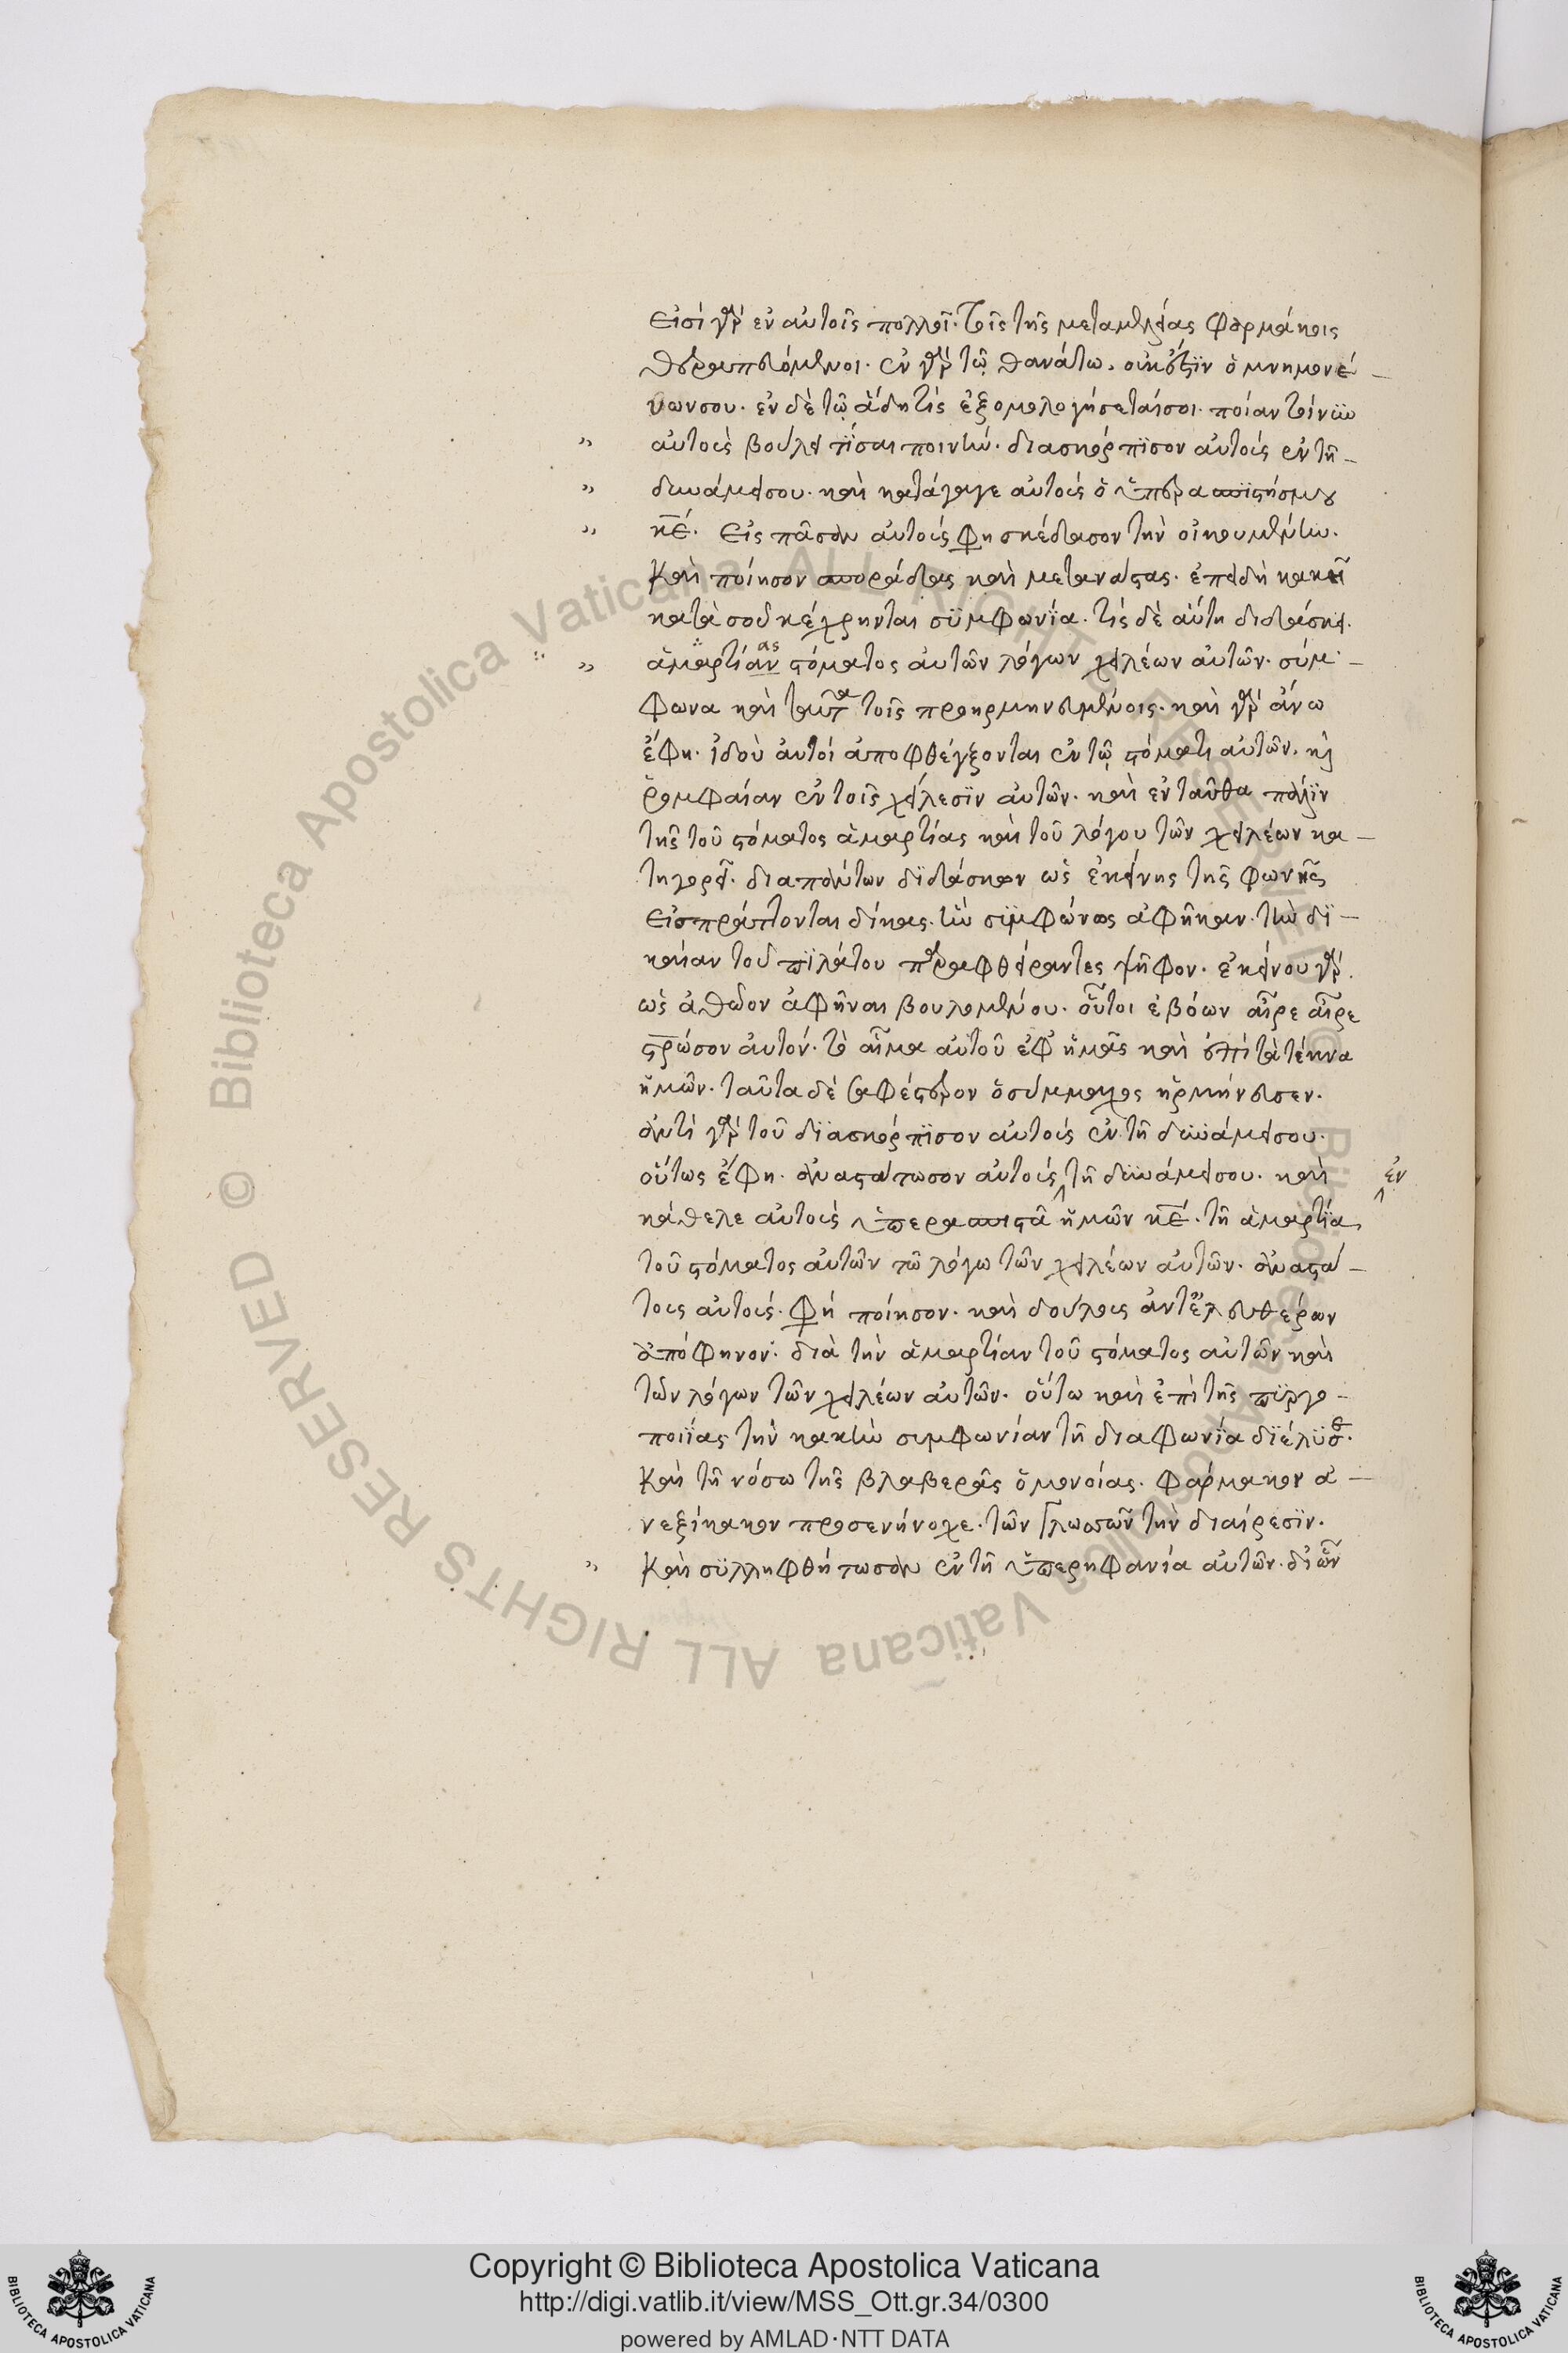 Εἰσὶ γὰρ ἐν αὐτοῖς πολλοὶ· τοῖς τῆς μεταμελείας φαρμάκοις
θεραπευόμενοι· ἐν γὰρ τῷ θανάτω, οὐκ ἔστιν ὁ μνημονεύ-
ων σου· ἐν δὲ τῷ ἅδη τίς ἐξομολογήσεταί σοι· ποίαν τοίνυν
αὐτοὺς βούλει τίσαι ποινήν· διασκόρπισον αὐτοὺς ἐν τῆ
δυνάμει σου· καὶ κατάγαγε αὐτοὺς ὁ ὑπερασπιστής μου
κε· Εἰς πᾶσαν αὐτοὺς φη σκέδασον τὴν οἰκουμένην·
Καὶ ποίησον σποράδας καὶ μετανάστας· ἐπειδὴ κακῆ
κατὰ σοῦ κέχρηνται συμφωνία· τίς δὲ αὕτη διδάσκει·
ἁμαρτίαν ας στόματος αὐτῶν λόγων χειλέων αὐτῶν· σύμ-
φωνα καὶ ταῦτα τοῖς προηρμηνευμένοις· καὶ γὰρ ἄνω
ἔφη· ἰδοὺ αὐτοὶ ἀποφθέγξονται ἐν τῷ στόματι αὐτῶν· καὶ
ῥομφαίαν ἐν τοῖς χείλεσιν αὐτῶν· καὶ ἐνταῦθα πάλιν
τῆς τοῦ στόματος ἁμαρτίας καὶ τοῦ λόγου τῶν χειλέων κα-
τηγορεῖ· διαπάντων διδάσκων ὡς ἐκείνης τῆς φωνῆς
εἰσπράττονται δίκας· ἣν συμφώνως ἀφῆκαν· τὴν δι-
καίαν τοῦ πιλάτου παραφθείραντες ψῆφον· ἐκείνου γὰρ
ὡς ἀθῶον ἀφῆναι βουλομένου· οὗτοι ἐβόων αἶρε αἶρε
σταύρωσον αὐτόν· τὸ αἷμα αὐτοῦ ἐφ ἡμᾶς καὶ ἐπὶ τὰ τέκνα
ἡμῶν· ταῦτα δὲ σαφέστερον ὁ σύμμαχος ἡρμήνευσεν·
ἀντὶ γὰρ τοῦ διασκόρπισον αὐτοὺς ἐν τῆ δυνάμει σου·
οὕτως ἔφη· ἀναστάτωσον αὐτοὺς ἐν τῆ δυνάμει σου· καὶ
κάθελε αὐτοὺς ὑπερασπιστὰ ἡμῶν κε· τῆ ἁμαρτία
τοῦ στόματος αὐτῶν τῶ λόγω τῶν χειλέων αὐτῶν· ἀναστά-
τους αὐτοὺς· φη ποίησον· καὶ δούλους ἀντ ἐλευθέρων
ἀπόφηνον· διὰ τὴν ἁμαρτίαν τοῦ στόματος αὐτῶν καὶ
τῶν λόγων τῶν χειλέων αὐτῶν· οὕτω καὶ ἐπὶ τῆς πυργο-
ποιΐας τὴν κακὴν συμφωνίαν τῆ διαφωνία διέλυσε·
Καὶ τῆ νόσω τῆς βλαβερᾶς ὁμονοίας· φάρμακον ἀ-
νεξίκακον προσενήνοχε· τῶν γλωσσῶν τὴν διαίρεσιν·
Καὶ συλληφθήτωσαν ἐν τῆ ὑπερηφανία αὐτῶν· δι ὧν
Copyright © Biblioteca Apostolica Vaticana
http://digi.vatlib.it/view/MSS_Ott.gr.34/0300
powered by AMLAD·NTT DATA